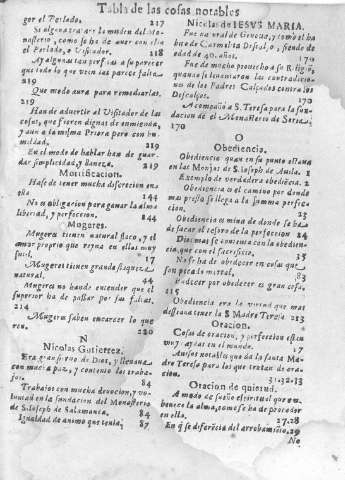 Tabla de las cosas notables
gor el Perlado. 217
Si alguna traxere la orden del Monasterio, como se ha de auer con ella
el Perlado, o Visitador. 218
Ay algunas tan perfetas a su parecer
que todo lo que ven las parece falta
219
Que modo aura para remediarlas.
219
Han de aduertir al Visitador de las
cosas, que fueren dignas de enmienda,
y aun a la misma Priora pero con humildad, 219
En el modo de hablar han de guardar simplicidad, y llaneza. 219
Mortificacion.
Hase de tener mucha discrecion en
ella 144
No es obligacion para ganar la almo
libertad, y perfeccion, 144
Mugeres.
Mugeres tienen natural flaco, y el
amor proprio que reyna en ellas muy
sutil, 17
Mugeres tienen grande flaqueza
natural, 44
Mugeres no hande entender que el
superior ha de passar por sus faltas.
214
Mugeres saben encarecer lo que
220
N
Nicolas Gutierrez.
Era gran sieruo de Dios, y lleuaua
con mucha paz, y contento los trabajos. 84
Trabajos con mucha deuocion, y voluntad en la fundacion del Monasterio
de S. Ioseph de Salamanca. 84
Igualdad de animo que tenia, 87
Nicolas de IESVS MARIA.
Fue natural de Genoua, y tomò el habito de Carmelita Descalço, siendo de
edad de 40. años. 170
Fue de mucho prouecho a su Religion,
quando se leuantaron las contradiciones de los Padres Calçados contra los
Descalços. 170
Acompañò a S. Teresa para la fundacion de el Monasterio de Soria.
170
O
Obediencia.
Obediencia quan en su punto estaua
en las Monjas de S. Ioseph de Auila. 1
Exemplo de verdadera obediẽcia. 2
Obediencia es el camino por donde
mas presto se llega a la summa perfeccion. 23
Obediencia es mina de donde se ha
de sacar el tesoro de la perfeccion 24
Dios mas se contenta con la obediencia, que con el sacrificio. 25
No se ha de obedecer en cosas que
son pecado mortal, 83
Padecer por obedecer es gran cosa.
215
Obediencia era la virtud que mas
desseaua tener la S. Madre Teresa 213
Oracion.
Cosas de oracion, y perfeccion estan
muy caydas en el mundo. 17
Auisos notables que da la santa Madre Teresa para los que tratan de oracion. 31.32.33
Oracion de quietud.
A modo de sueño espiritual que embeuece la alma, como se ha de proceder
en ello. 27.28
En q̃ se diferẽcia del arrobamiẽto, 29
No